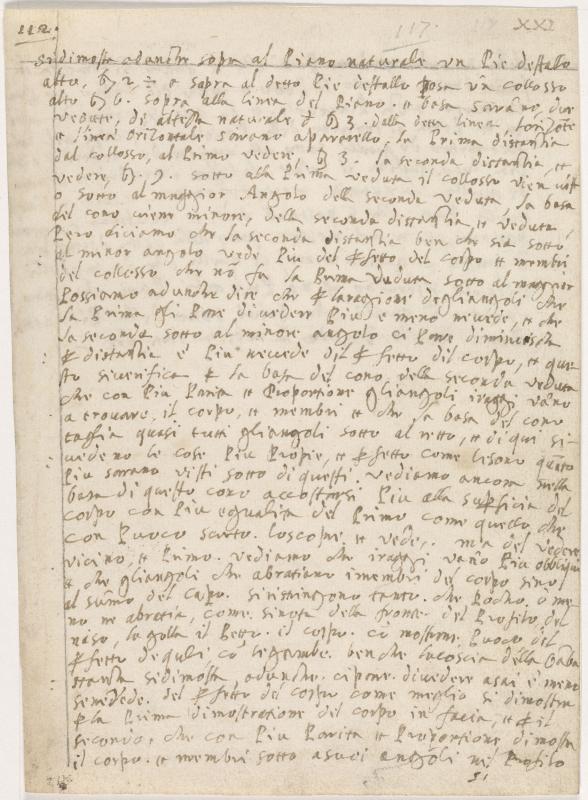 112. 117. XXI
Si dimostra adunche sopra al Piano naturale un Pie destallo
alto, b) 2, e sopra al detto Pie destallo posa un collosso
alto b) 6. sopra alla linea del Piano. et basa sarano, due
vedute, di altezza naturale b) 3. dalla detta linea
et linea orizontale sarano aparatello, la Prima distantia
dal collosso, al Primo vedere, b) 3. la seconda distantia, et
vedere, b). 7. sotto alla Prima veduta il collosso vien
o sotto al maggior Angolo della seconda veduta la basa
del cono viene minore, della seconda distantia et veduta,
Pero diciamo che la seconda distantia ben che sia sotto
al minor angolo vede Piu del Pfetto del corpo et membri
del collosso che no fa la Prima Veduta sotto al maggior
Possiamo adunche dire che P la ragione degli angoli che
la Prima gli Pone di vedere Piu e meno ne vede, et che
la seconda sotto al minore angolo ci Pone
P distantia e Piu ne vede del Pfetto del corpo, et que
sto si verifica P la basa del cono, della seconda veduta
che con Piu Parita et Proportione gli angoli i raggi vano
a trovare, il corpo, et membri et che la basa del cono
taglia quasi tutti gli angoli sotto al retto, et di qui si
vedeno le cose Piu Propie, et Pfetto come le sono quanto
Piu sarano visti sotto di questi. Vediamo ancora nella
basa di questo cono accostarsi Piu alla supficia del
corpo con Piu egualita del Primo come quello che
con Puoco scurto. lo scopre, et vede,. ma del vedere
vicino, et Primo. Vediamo che i raggi vano Piu obbliqui
et che gli angoli che abratiano i membri del corpo sino
al sumo del Capo. si ristringono tanto. che Pocho, o me
no ne abratia, come. si nota della fronte. del Profilo del
naso, la golla il Petto. il corpo. ci mostrano Puoco del
Pfetto le gambe. ben che la coscia della
stanta si dimostra, adunche. ci pone. di vedere asai e meno
se ne vede. del Pfetto del corpo come meglio si dimostra
P la Prima dimostratione del corpo in facia, et P il
secondo, che con Piu Parita et Proportione dimostra
il corpo. et membri sotto a suoi angoli nel Profilo